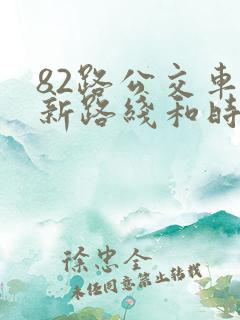 82路公交车
新路线和时
徐忠全
未经同意禁止转载